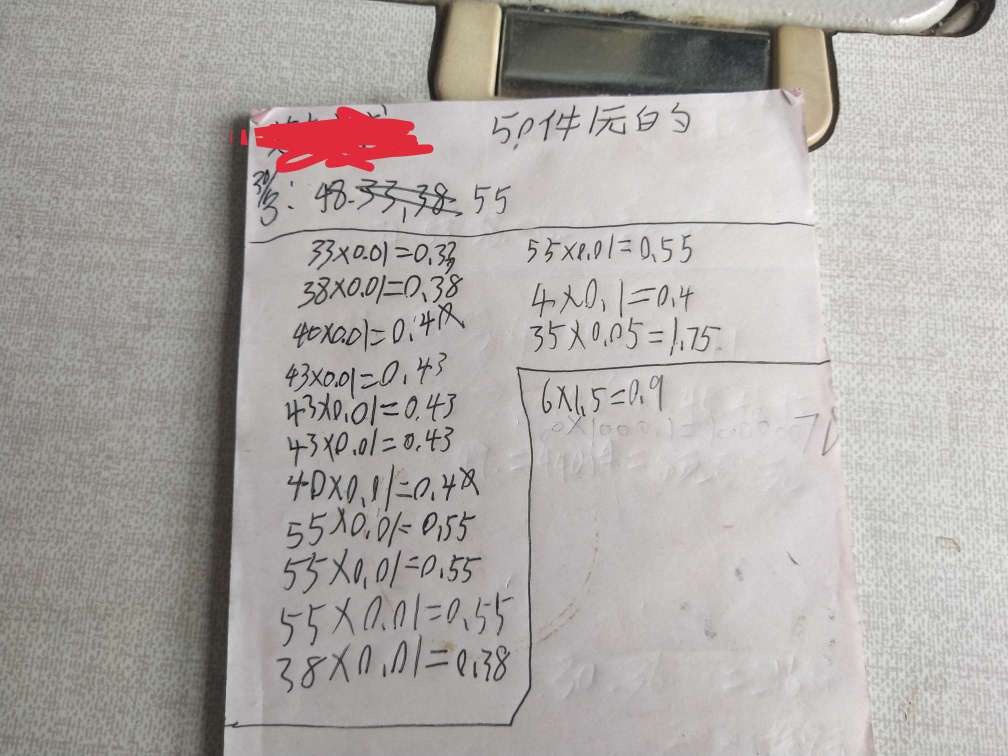 50件后白的
30/3: 48.33,38 55
33×0.01=0.33
38×0.01=0.38
40×0.01=0.4
43×0.01=0.43
43×0.01=0.43
43×0.01=0.43
40×0.01=0.4
55×0.01=0.55
55×0.01=0.55
55×0.01=0.55
38×0.01=0.38
55×0.01=0.55
4×0.1=0.4
35×0.05=1.75
6×1.5=0.9